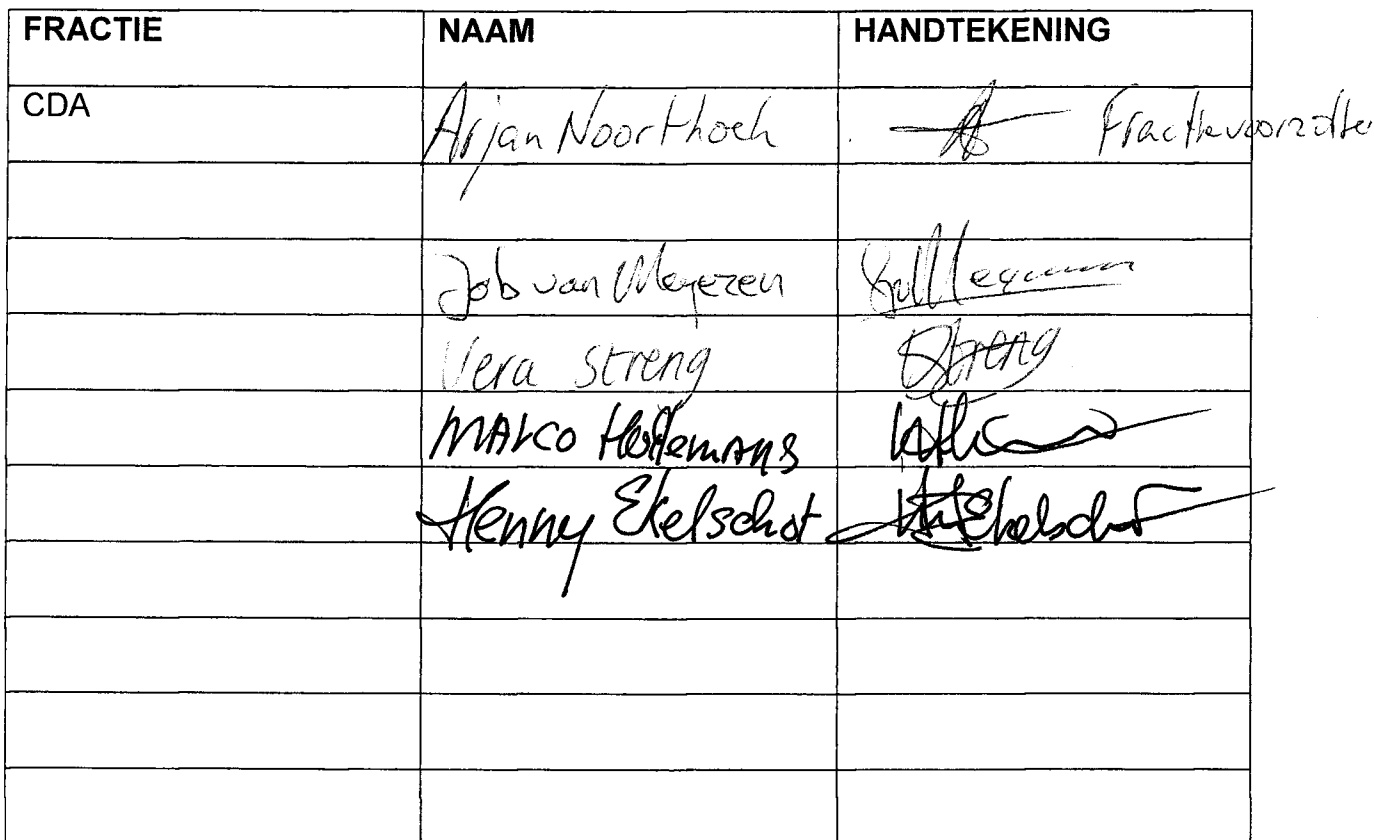 FRACTIE NAAM HANDTEKENING
CDA Arjan Noorthoek Fractievoorzitter
Job van Meyezen
Vera Streng Streng
MARCO Hollemans
Henny Ekelschot Ekelschot